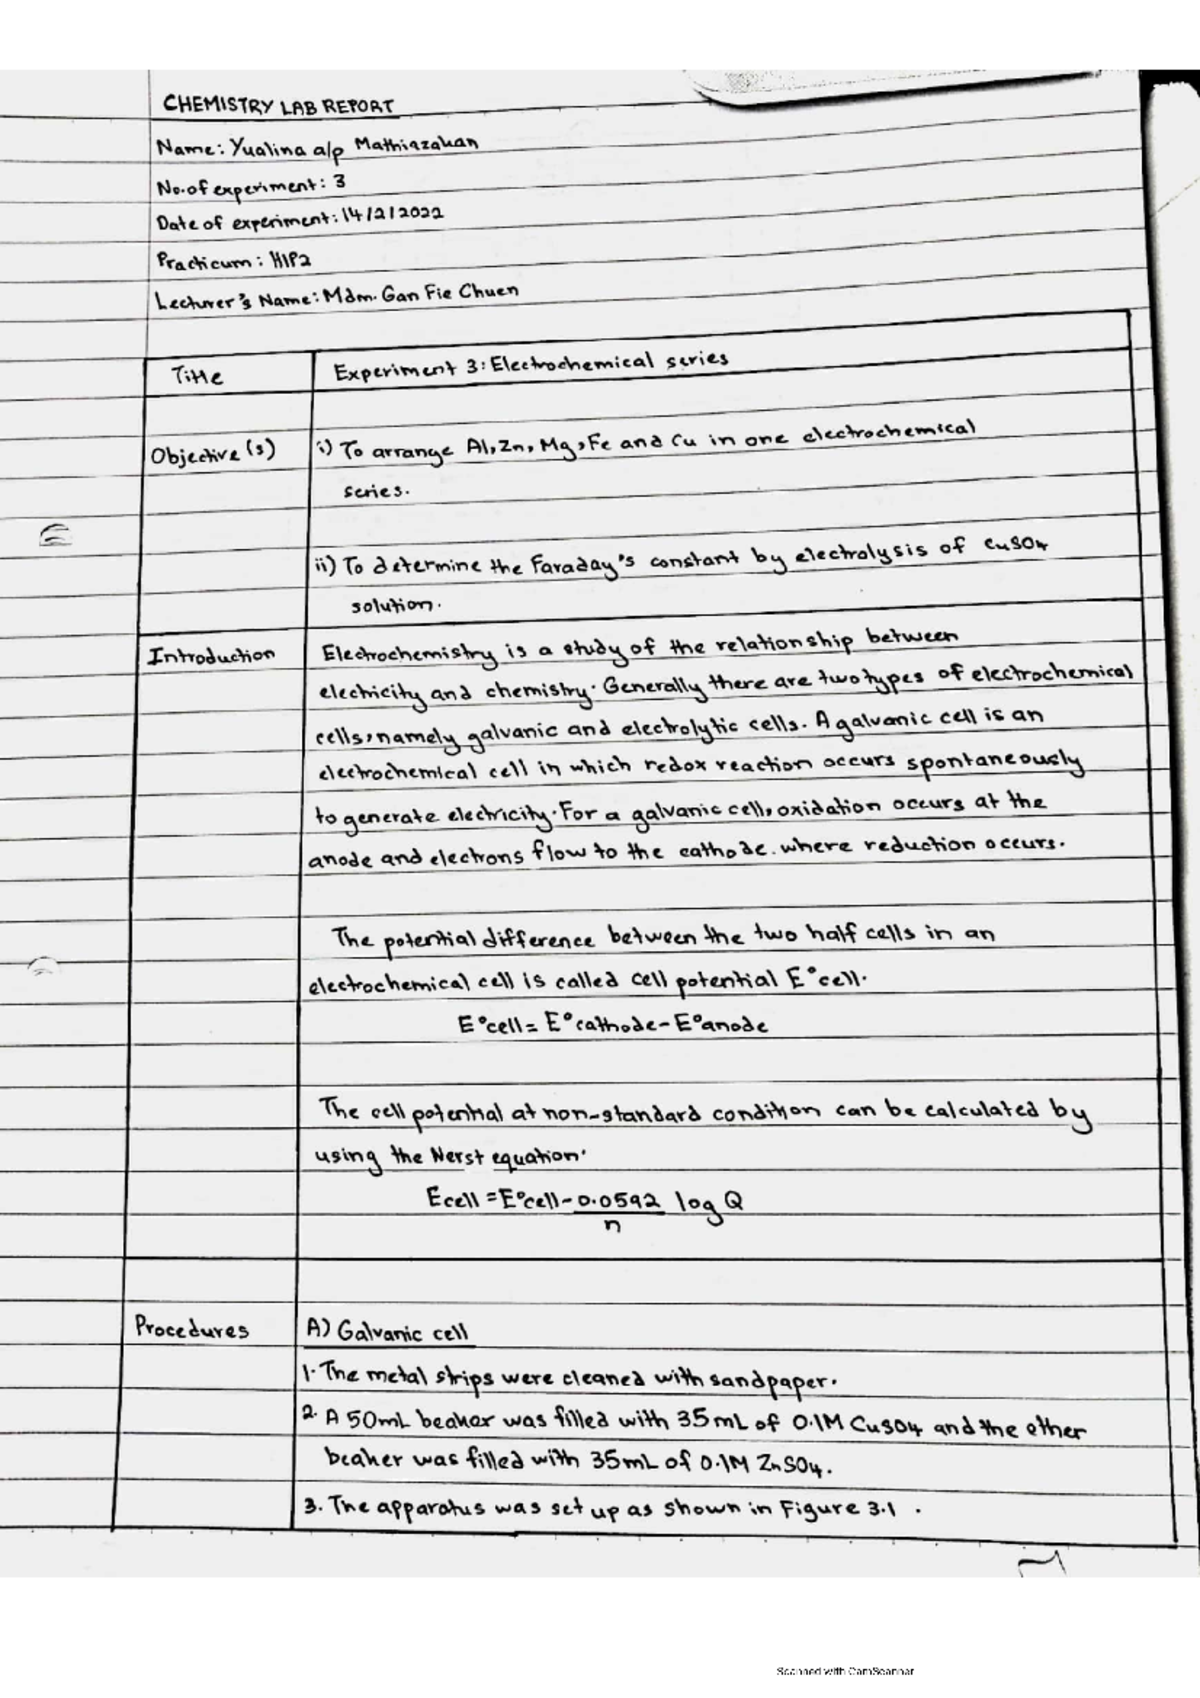 CHEMISTRY LAB REPORT
Name: Yualina a/p Mathiazakan
No. of experiment: 3
Date of experiment: 14/2/2022
Practicum: H1P2
Lecturer's Name: Mdm. Gan Fie Chuen
Title Experiment 3: Electrochemical series
Objective (s) i) To arrange Al, Zn, Mg, Fe and Cu in one electrochemical
series.
ii) To determine the Faraday's constant by electrolysis of CuSO4
solution.
Introduction Electrochemistry is a study of the relationship between
electricity and chemistry. Generally there are two types of electrochemical
cells, namely galvanic and electrolytic cells. A galvanic cell is an
electrochemical cell in which redox reaction occurs spontaneously
to generate electricity. For a galvanic cell, oxidation occurs at the
anode and electrons flow to the cathode. where reduction occurs.
The potential difference between the two half cells in an
electrochemical cell is called cell potential E°cell.
E°cell = E°cathode - E°anode
The cell potential at non-standard condition can be calculated by
using the Nerst equation.
Ecell = E°cell - 0.0592 log Q
n
Procedures A) Galvanic cell
1. The metal strips were cleaned with sandpaper.
2. A 50mL beaker was filled with 35mL of 0.1M CuSO4 and the other
beaker was filled with 35mL of 0.1M ZnSO4.
3. The apparatus was set up as shown in Figure 3.1 .
Scanned with CamScanner